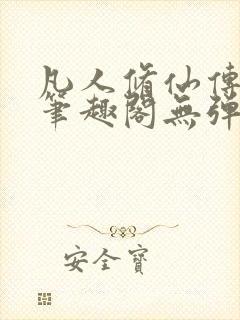 凡人脩仙傳
筆趣閣無彈
安全寶